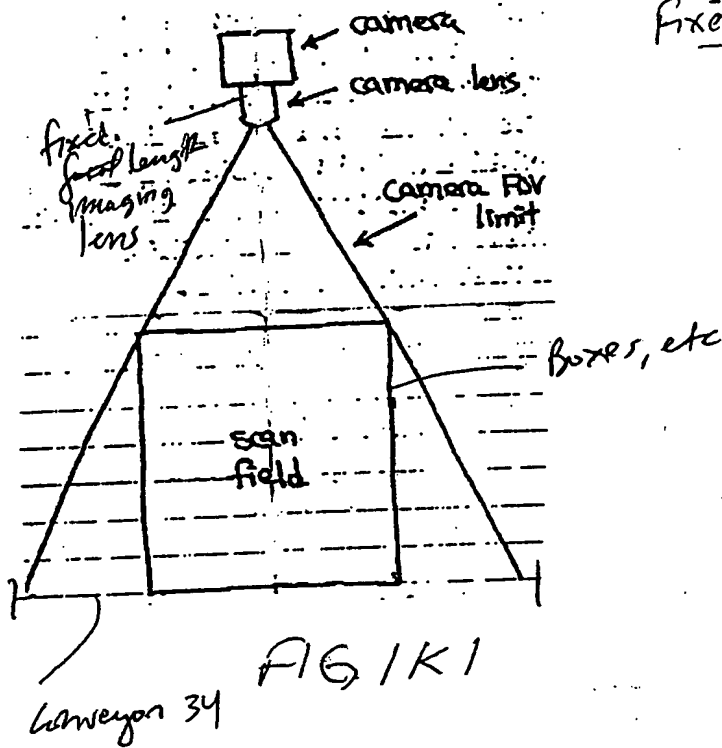 camera
Fixe
camera lens
fixed
focal length
imaging
lens
camera FOV
limit
Boxes, etc
scan
field
FIG. 1K1
Conveyor 34